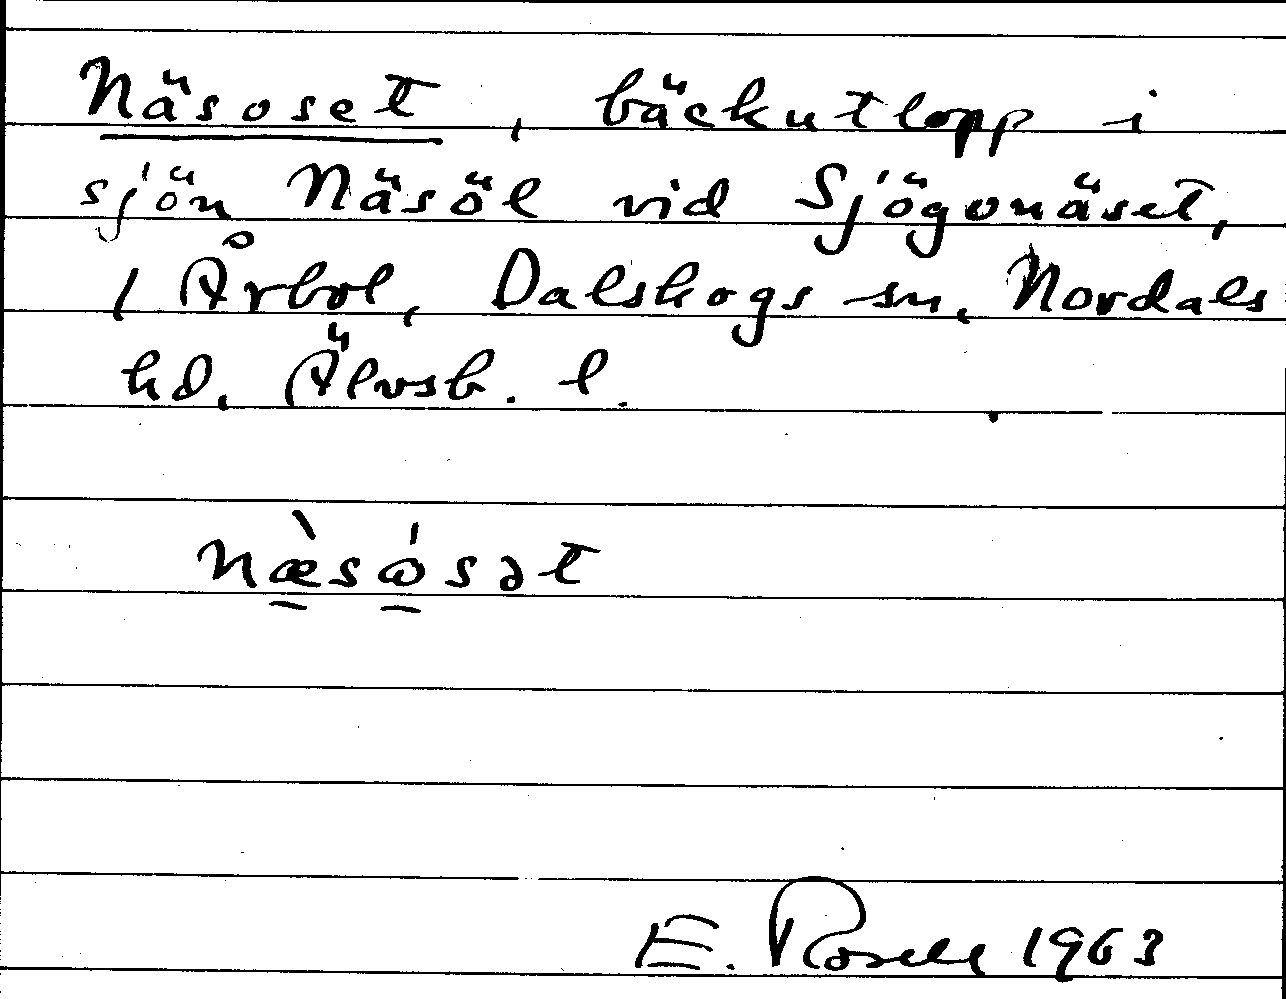 Näsoset, bäckutlopp i
sjön Näsöl vid Sjögonäset,
1 Årbol, Dalskogs sn, Nordals
hd. Älvsb. l.
næ̀sǿsət
E. Rosell 1963